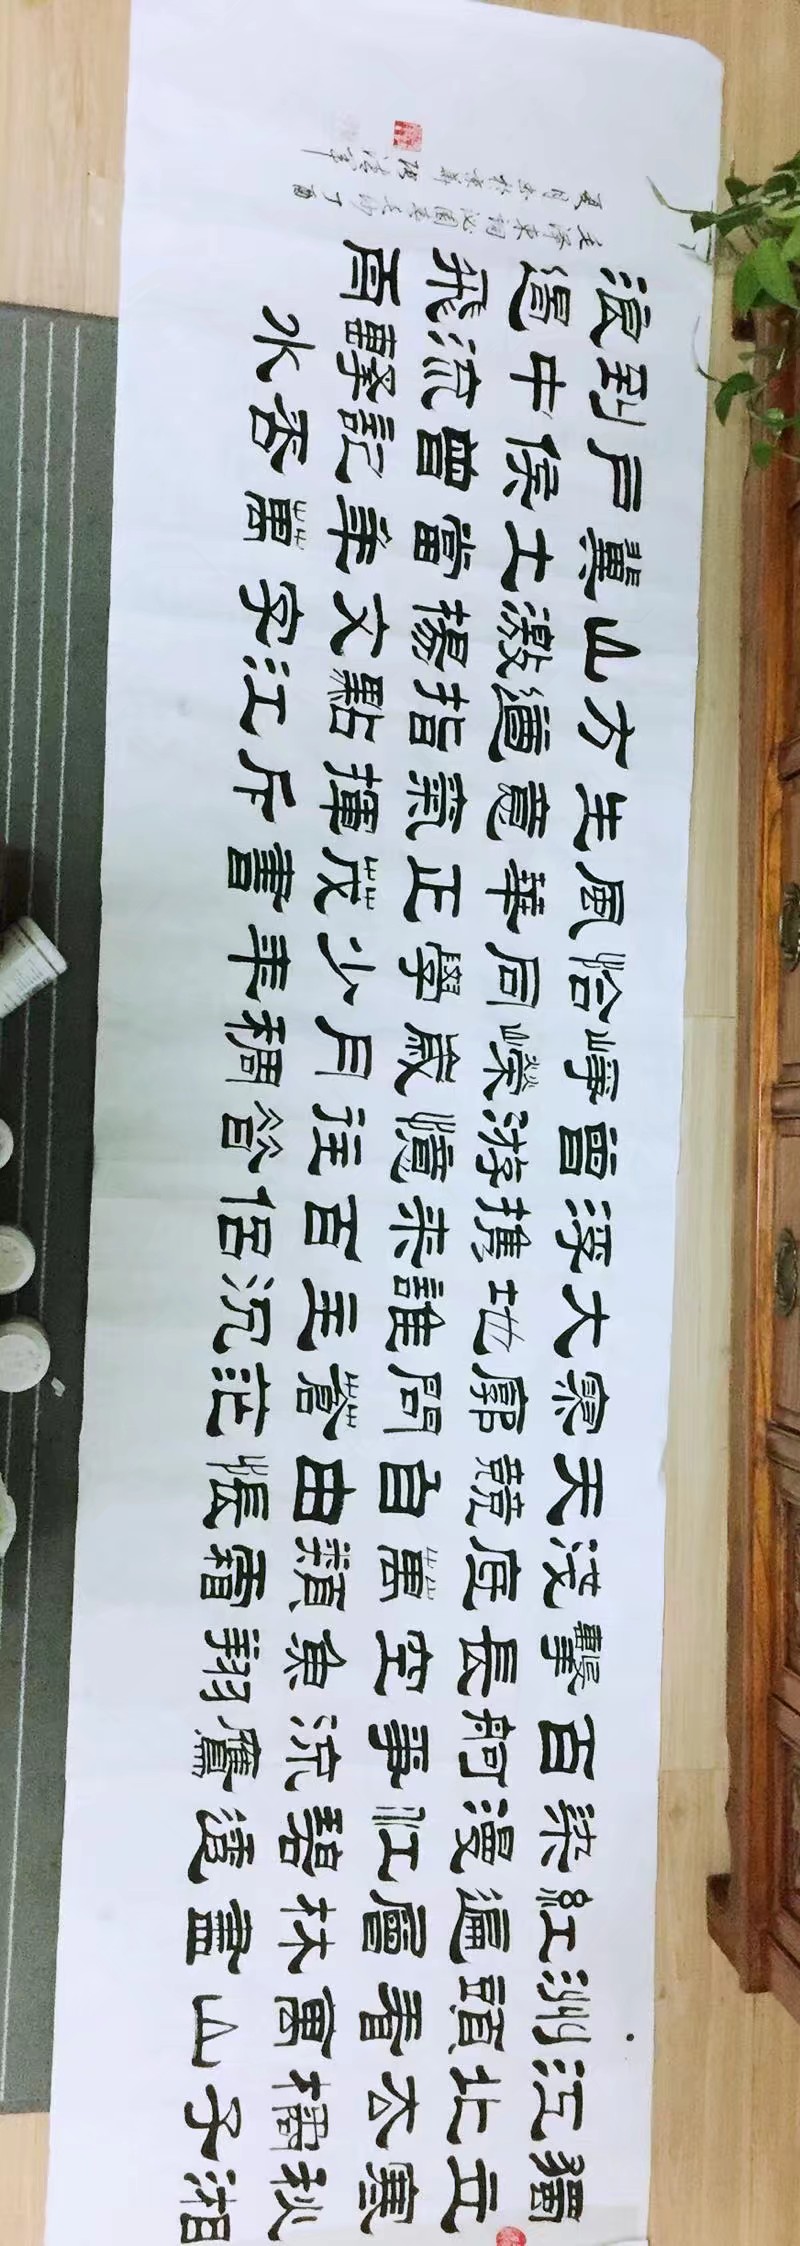 獨立寒秋湘
江北去橘子
洲頭看萬山
紅遍層林盡
染漫江碧透
百舸爭流鷹
擊長空魚翔
淺底萬類霜
天競自由悵
寥廓問蒼茫
大地誰主沉
浮攜來百侣
曾游憶往昔
崢嶸歲月稠
恰同學少年
風華正茂書
生意氣揮斥
方遒指點江
山激揚文字
糞土當年萬
户侯曾記否
到中流擊水
浪遏飛舟
毛澤東詞沁園春長沙丁酉
夏月书於京華